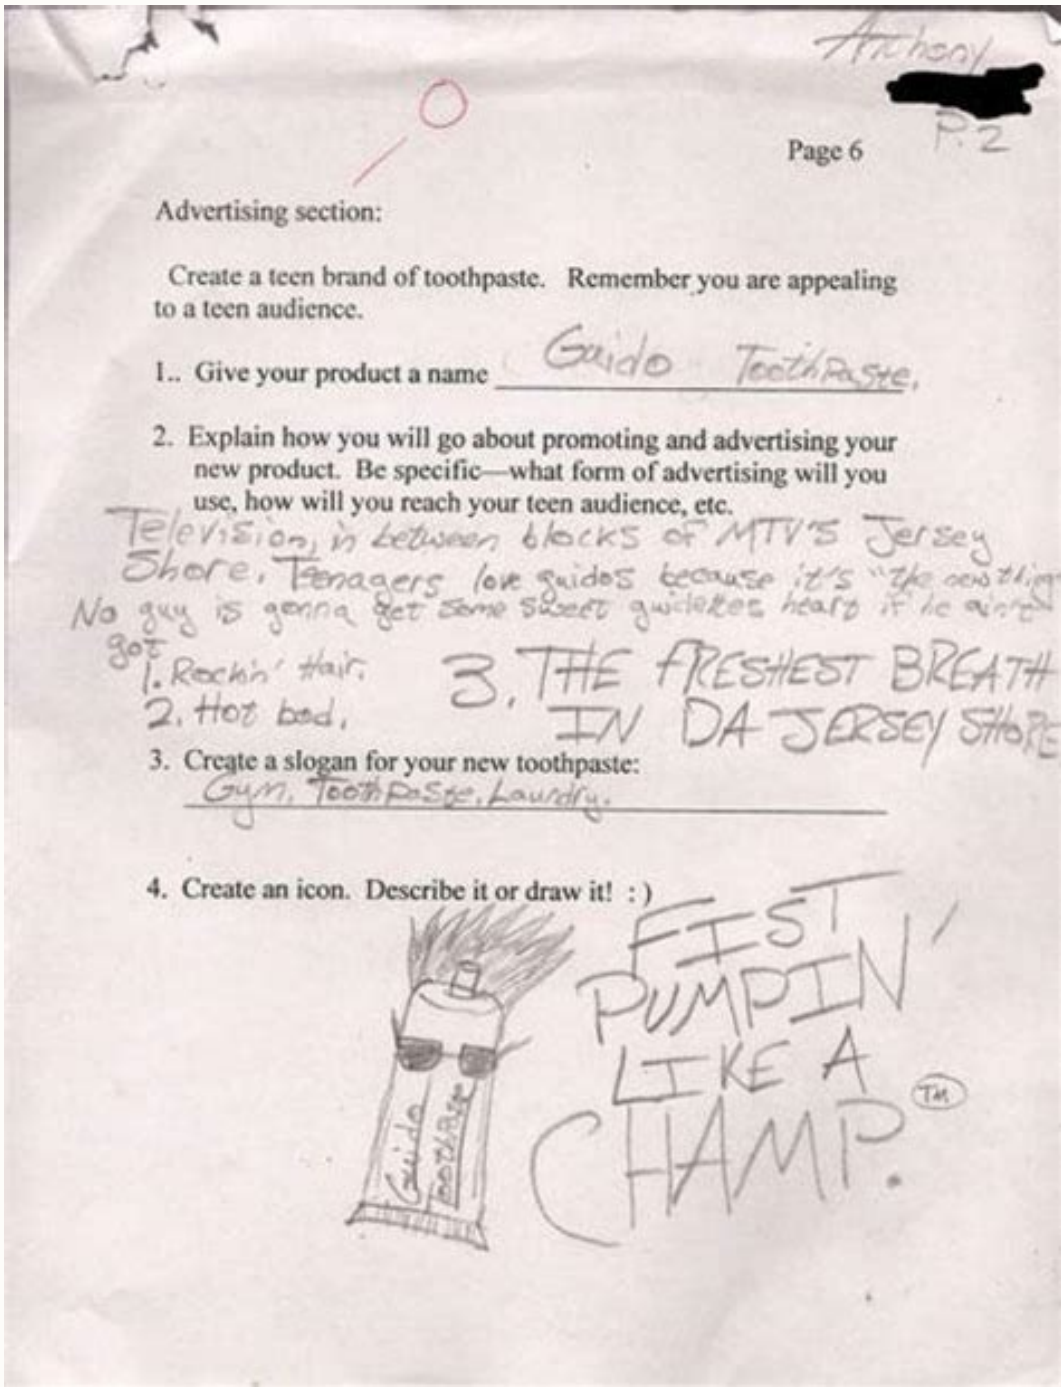 Anthony
P. 2
Page 6
Advertising section:
Create a teen brand of toothpaste. Remember you are appealing
to a teen audience.
1.. Give your product a name Guido ToothPaste.
2. Explain how you will go about promoting and advertising your
new product. Be specific—what form of advertising will you
use, how will you reach your teen audience, etc.
Television, in between blocks of MTV'S Jersey
Shore. Teenagers love guidos because it's "the new thing
No guy is gonna get some sweet guidettes heart if he ain't
got
1. Rockin' Hair.
2. Hot bod.
3. THE FRESHEST BREATH
IN DA JERSEY SHORE
3. Create a slogan for your new toothpaste:
Gym, ToothPaste, Laundry.
4. Create an icon. Describe it or draw it! : )
FIST
PUMPIN'
LIKE A
CHAMP.
TM
Guido
ToothPaste